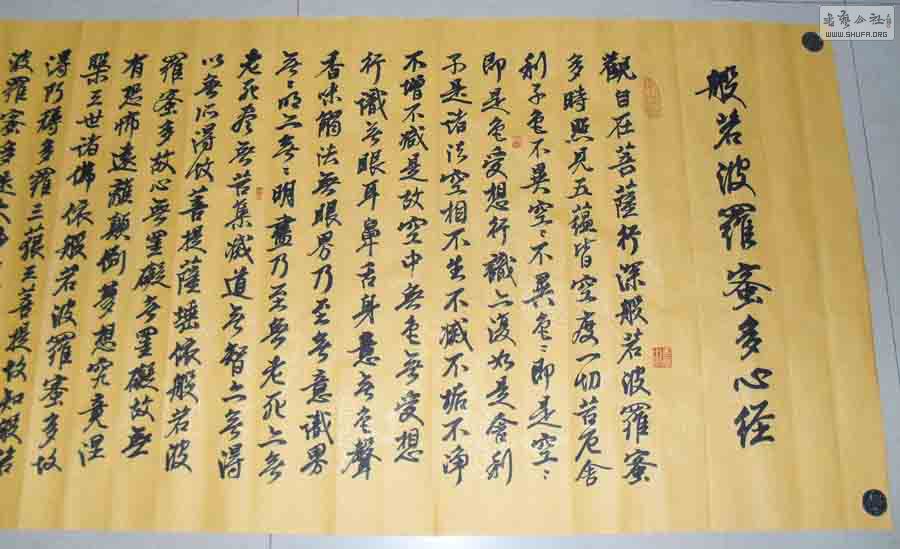 般若波羅蜜多心经
觀自在菩薩行深般若波羅蜜
多時照見五蕴皆空度一切苦厄舍
利子色不異空〻不異色〻即是空〻
即是色受想行識亦復如是舍利
子是诸法空相不生不减不垢不净
不增不减是故空中無色無受想
行識无眼耳鼻舌身意无色聲
香味觸法無眼界乃至无意識界
无〻明亦无〻明盡乃至无老死亦无
老死尽无苦集滅道无智亦无得
以无所得故菩提薩埵依般若波
羅蜜多故心無罣礙无罣礙故無
有恐怖遠離顛倒夢想究竟涅
槃三世诸佛依般若波羅蜜多故
得阿耨多羅三藐三菩提故知般若
波羅蜜多是大
书艺公社
WWW.SHUFA.ORG